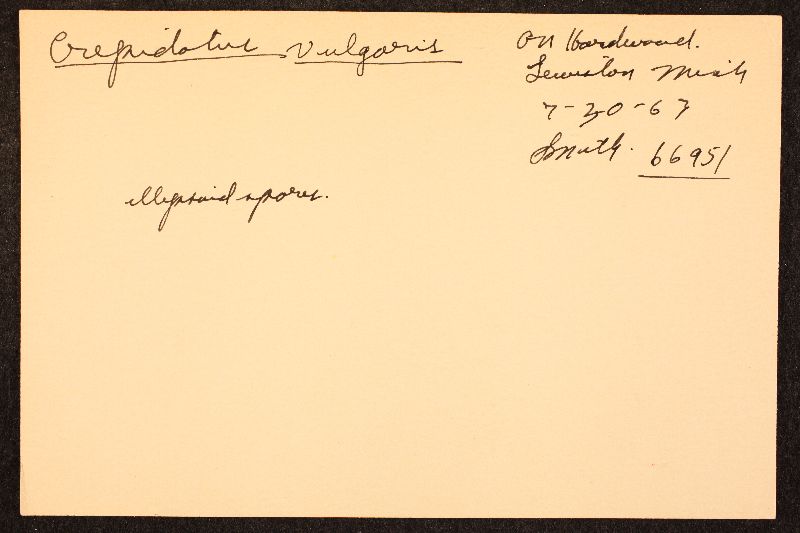 Crepidotus vulgaris
On Hardwood.
Lewiston Mich
7-20-63
Smith. 66951
ellipsoid spores.